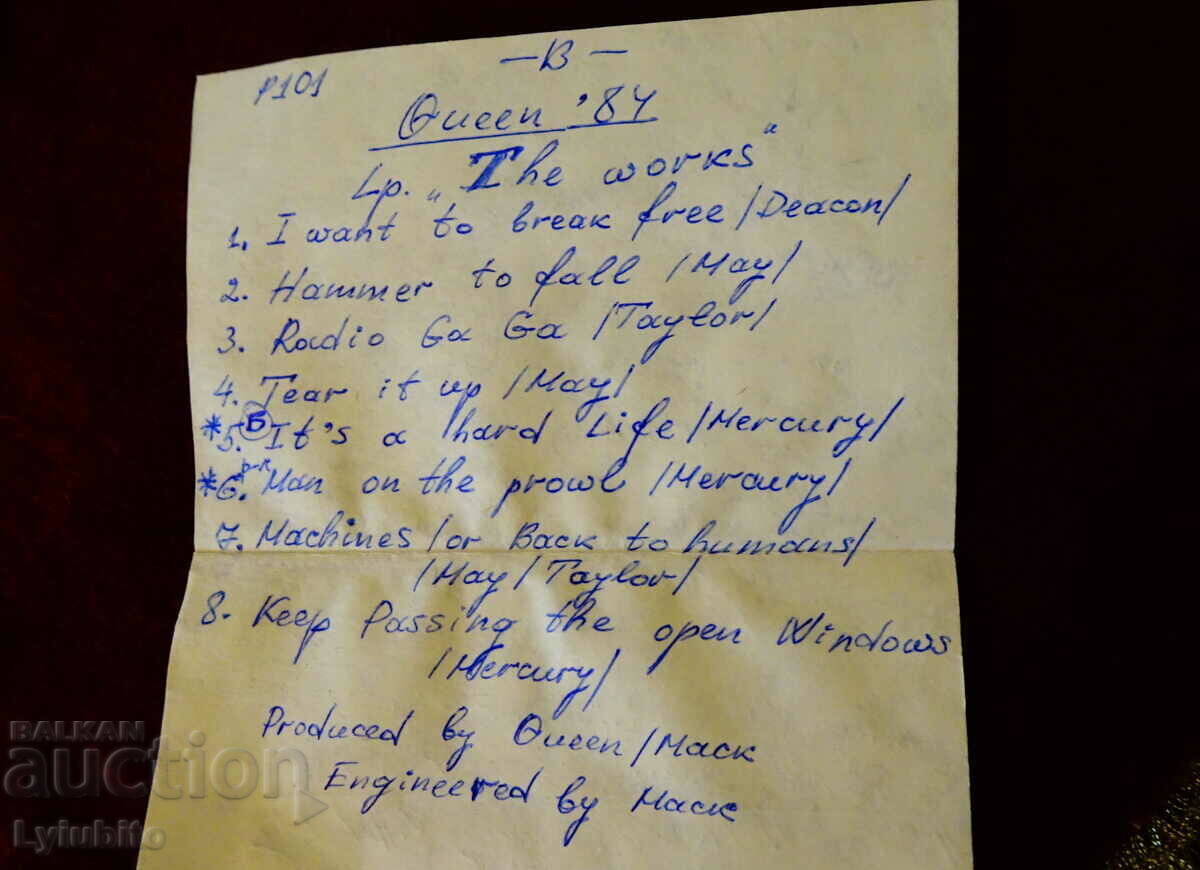 — B —
P101
Queen '84
Lp. „The works“
1. I want to break free /Deacon/
2. Hammer to fall /May/
3. Radio Ga Ga /Taylor/
4. Tear it up /May/
*5. Б It's a hard Life /Mercury/
*6. р-к Man on the prowl /Mercury/
7. Machines /or Back to humans/
/May/Taylor/
8. Keep Passing the open Windows
/Mercury/
Produced by Queen/Mack
Engineered by Mack
BALKAN
auction
Lyiubito